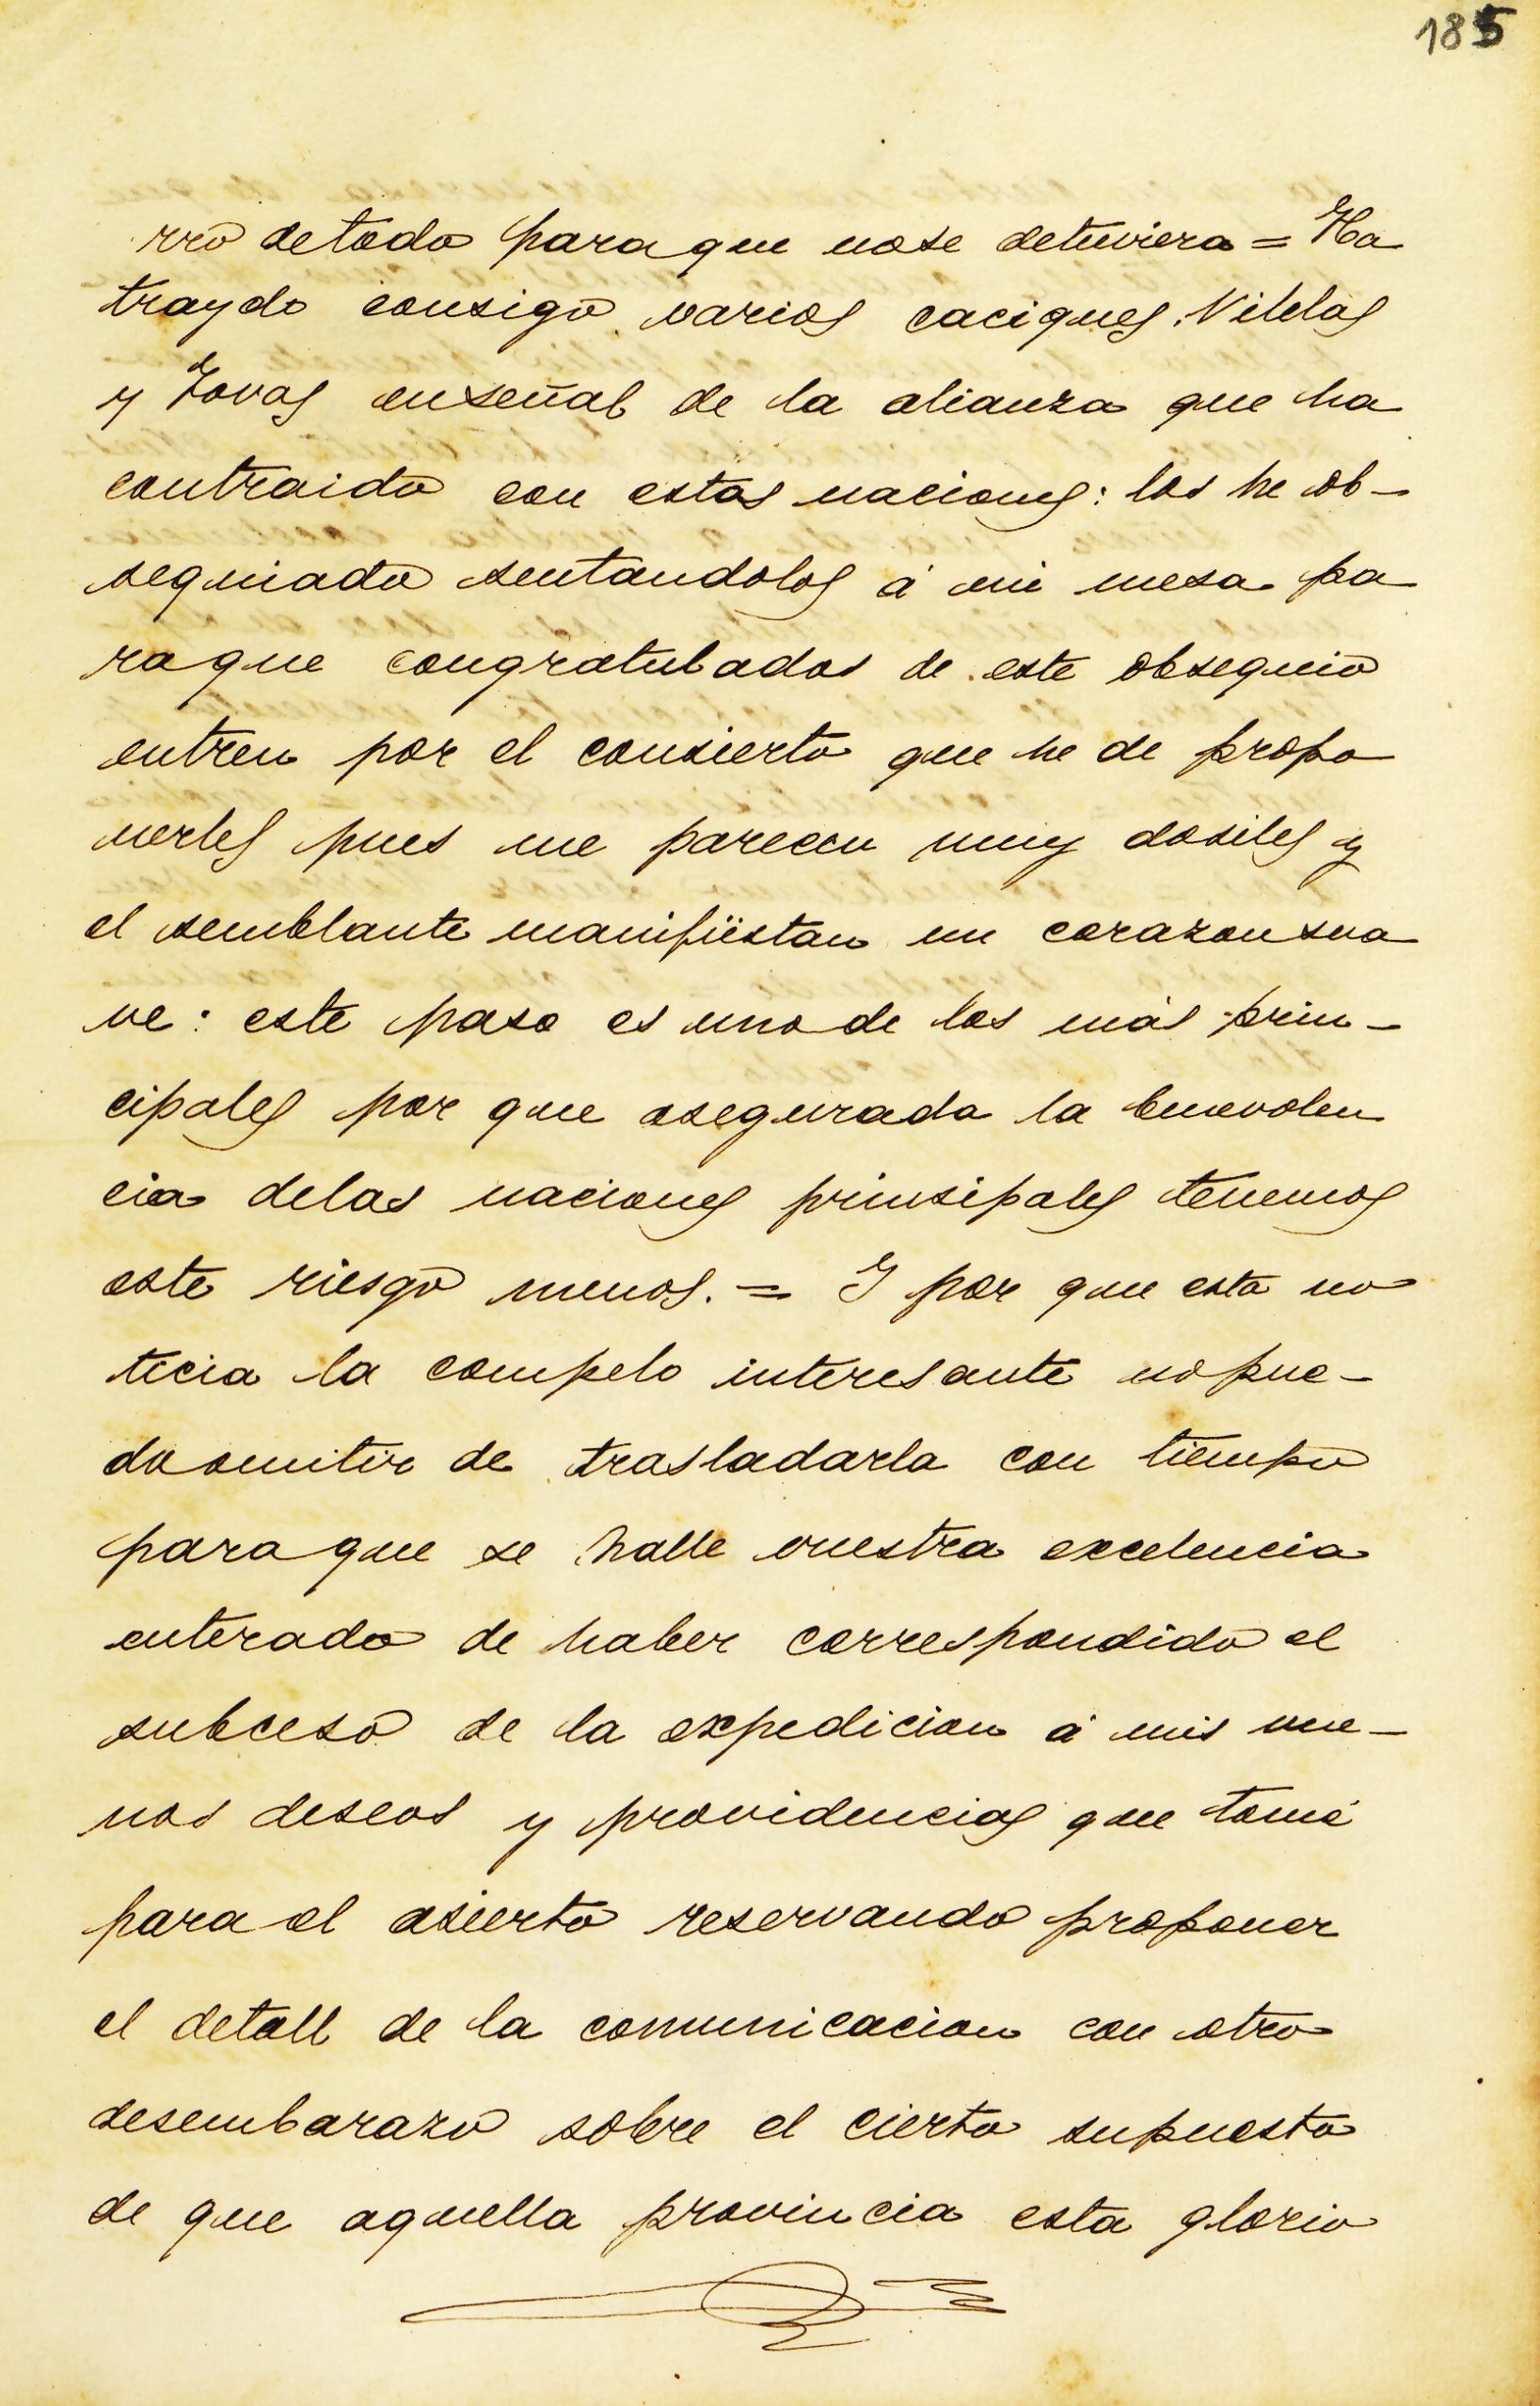 185
rro detodo paraque nose detuviera = Ha
traydo consigo varios caciques Vilelas
y Tovas enseñal de la alianza que ha
contraido con estas naciones: los he ob-
sequiado sentandolos á mi mesa pa
raque congratulados de este obsequio
entren por el consierto que he de propo
nerles pues me parecen muy dosiles y
el semblante manifiestan un corazon sua
ve: este paso es uno de los más prin-
cipales por que asegurada la benevolen
cia delas naciones prinsipales tenemos
este riesgo menos. = Y por que esta no
ticia la compelo interesante nopue-
do omitir de trasladarla con tiempo
paraque se halle vuestra excelencia
enterado de haber correspondido el
subceso de la expedicion á mis me-
nos deseos y providencias que tomé
para el asierto reservando proponer
el detall de la comunicacion con otro
desembarazo sobre el cierto supuesto
de que aquella provincia esta glorio